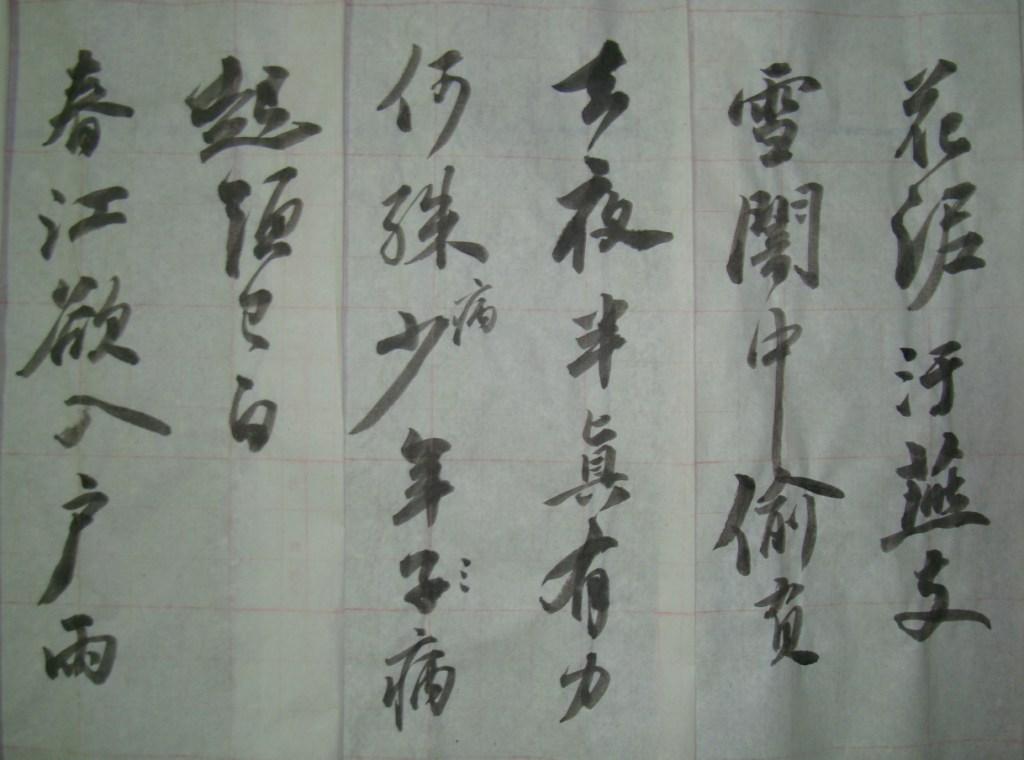 花泥汙燕支
雪闇中偷負
去夜半眞有力
何殊病少年子病
起頭已白
春江欲入戶雨